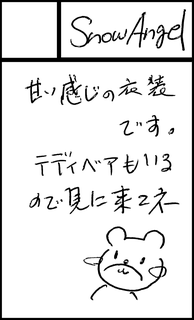 Snow Angel
甘い感じの衣装
です。
テディベアもいる
ので見に来てネー